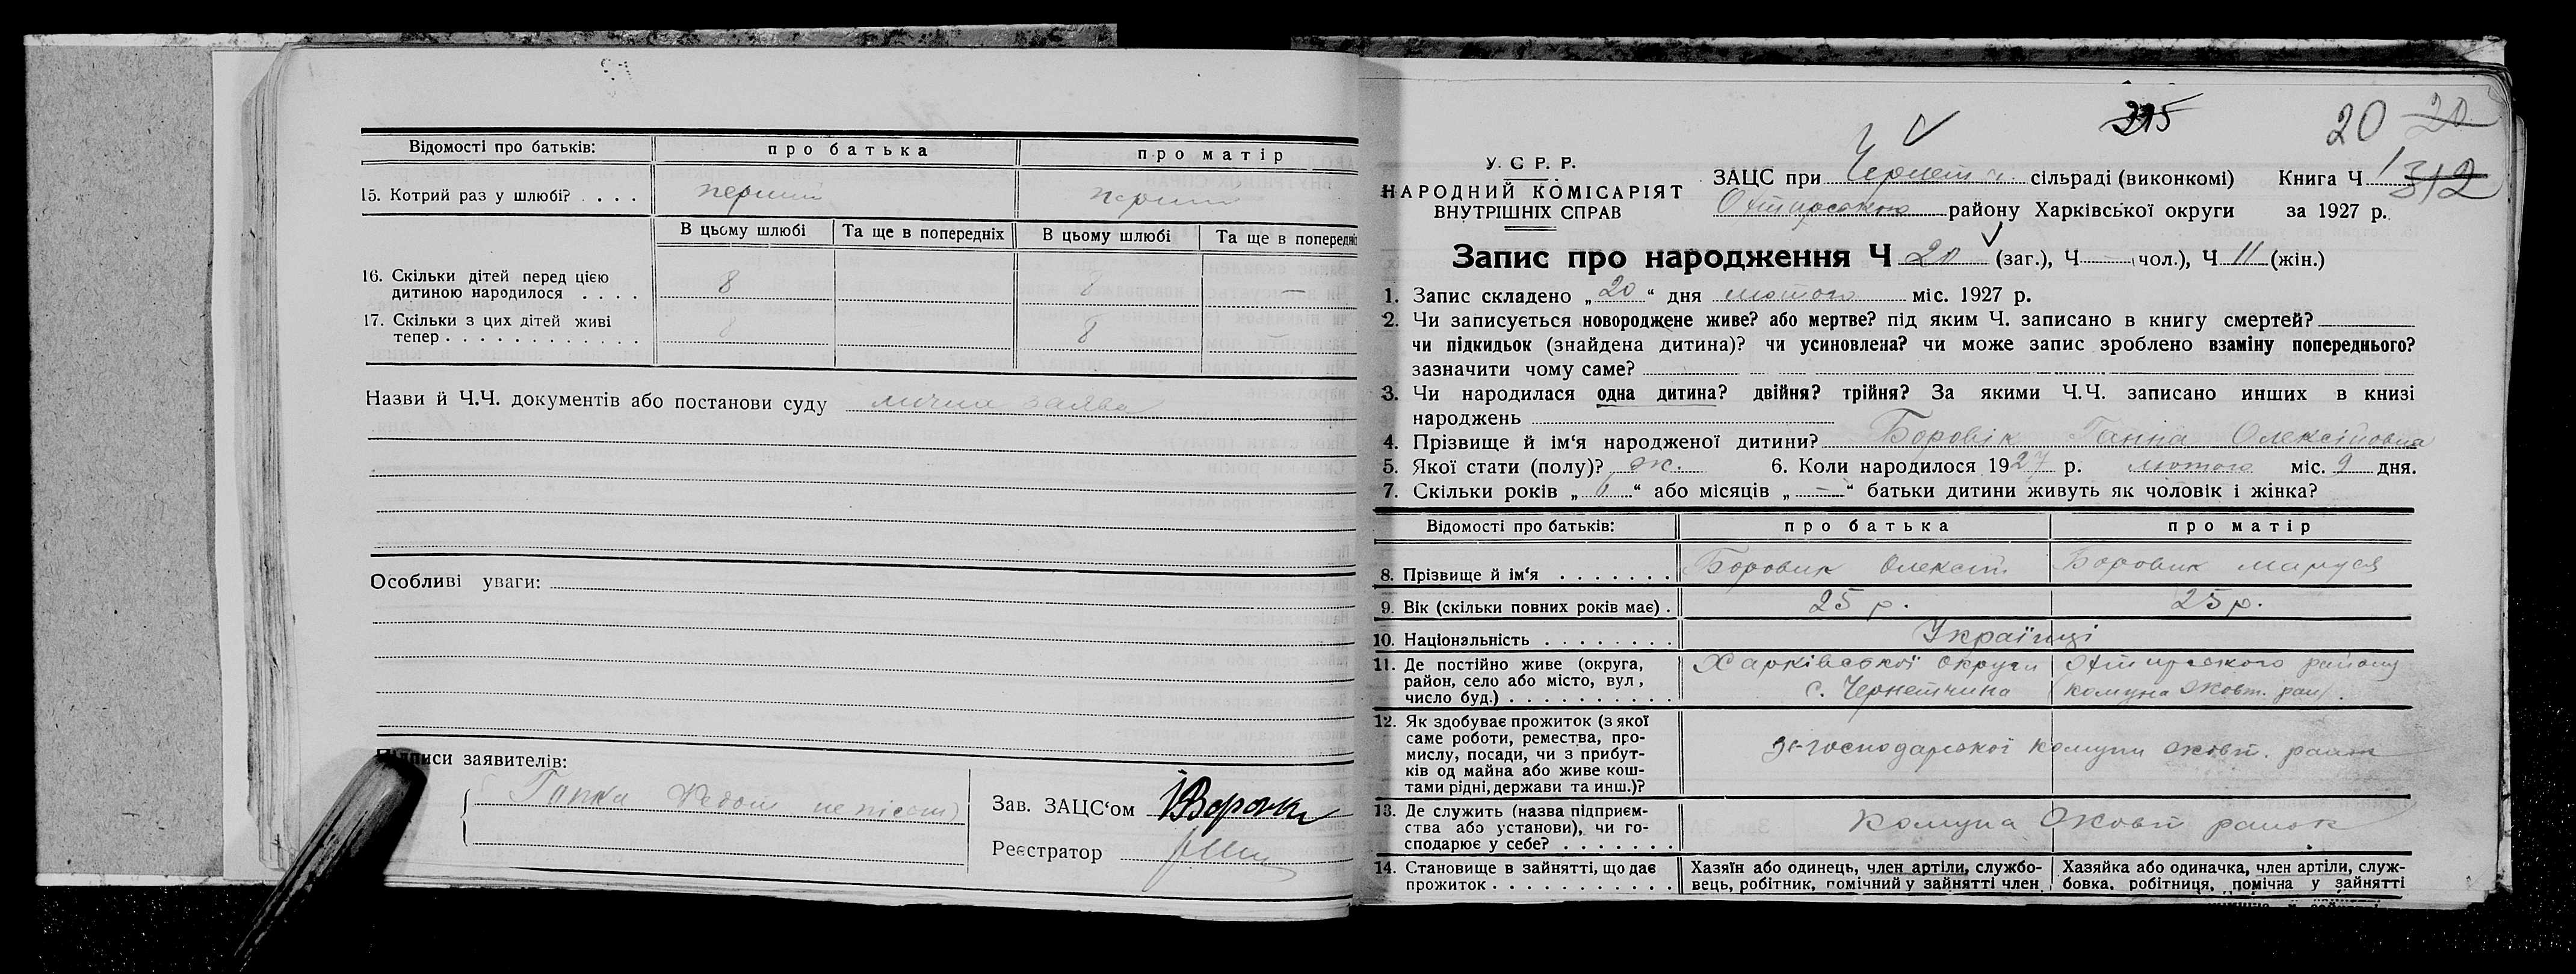 Відомості про батьків: про батька про матір
15. Котрий раз у шлюбі? . . . . перший перший
В цьому шлюбі Та ще в попередніх В цьому шлюбі Та ще в попередніх
16. Скільки дітей перед цією
дитиною народилося . . . . 8 8 —
17. Скільки з цих дітей живі
тепер . . . . . . . . . . . . 8 8 —
Назви й Ч.Ч. документів або постанови суду лична заява
Особливі уваги:
Підписи заявителів:
Зав. ЗАЦС‘ом
Реєстратор
315 20 20
У. С Р. Р.
НАРОДНИЙ КОМІСАРІЯТ
ВНУТРІШНІХ СПРАВ
ЗАЦС при Чернет сільраді (виконкомі) Книга Ч 1 312
Охтирського району Харківської округи за 1927 р.
Запис про народження Ч 20 (заг.), Ч — чол.), Ч 11 (жін.)
1. Запис складено „20“ дня лютого міс. 1927 р.
2. Чи записується новороджене живе? або мертве? під яким Ч. записано в книгу смертей?
чи підкидьок (знайдена дитина)? чи усиновлена? чи може запис зроблено взаміну попереднього?
зазначити чому саме?
3. Чи народилася одна дитина? двійня? трійня? За якими Ч.Ч. записано инших в книзі
народжень
4. Прізвище й ім‘я народженої дитини? Боровік Ганна Олексіīовна
5. Якої стати (полу)? ж. 6. Коли народилося 1927 р. лютого міс. 9 дня.
7. Скільки років „6“ або місяців „—“ батьки дитини живуть як чоловік і жінка?
Відомості про батьків: про батька про матір
8. Прізвище й ім‘я . . . . . . . Боровик Олексій Боровик Маруся
9. Вік (скільки повних років має) . 25 р. 25 р.
10. Національність . . . . . . . . Українці
11. Де постійно живе (округа, Харківської округи Охтирського району
район, село або місто, вул, с. Чернетчина комуна Жовт. ран.
число буд.) . . . . . . . . . .
12. Як здобуває прожиток (з якої
саме роботи, ремества, про-
мислу, посади, чи з прибут-
ків од майна або живе кош-
тами рідні, держави та инш.)?
господарської комуни Жовт.
13. Де служить (назва підприєм-
ства або установи), чи го- Комуна Жовт ранок
сподарює у себе? . . . . . . .
14. Становище в зайнятті, що дає Хазяїн або одинець, член артіли, службо- Хазяйка або одиначка, член артіли, служ-
прожиток . . . . . . . . . . . вець, робітник, помічний у зайнятті член бовка, робітниця, помічна у зайнятті